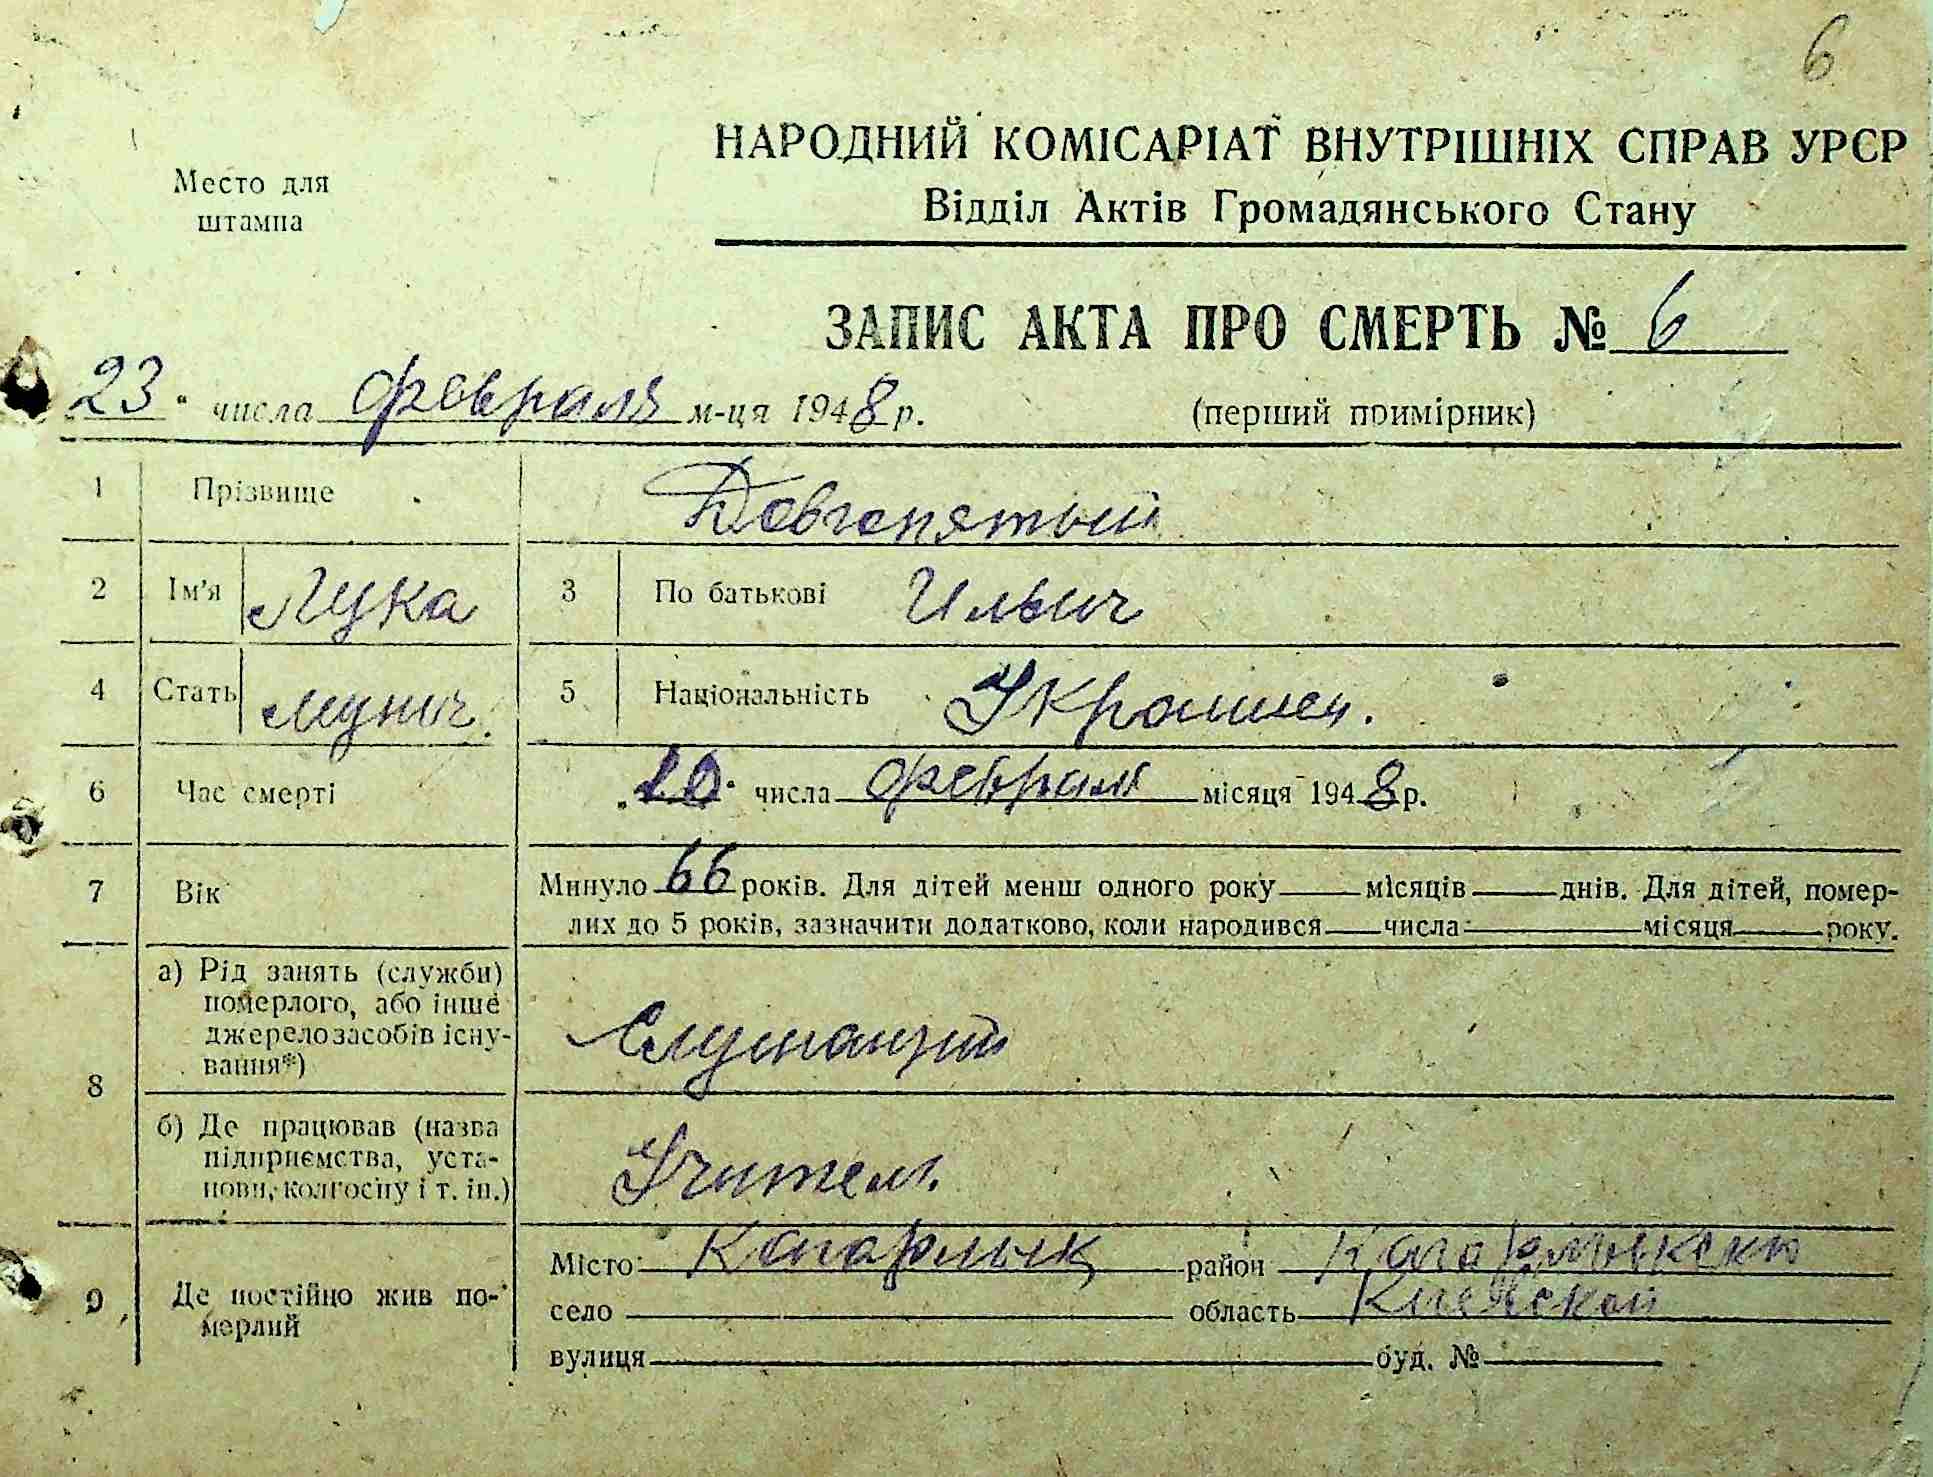 6
НАРОДНИЙ КОМІСАРІАТ ВНУТРІШНІХ СПРАВ УРСР
Відділ Актів Громадянського Стану
Место для
штампа
ЗАПИС АКТА ПРО СМЕРТЬ № 6
23 " числа февраля м-ця 1948 р.
(перший примірник)
1 Прізвище Довгопятый
2 Ім'я Лука 3 По батькові Ильич
4 Стать мужч. 5 Національність Украинец.
6 Час смерті „20" числа февраля місяця 1948 р.
7 Вік Минуло 66 років. Для дітей менш одного року місяців днів. Для дітей, помер-
лих до 5 років, зазначити додатково, коли народився числа місяця року.
8 а) Рід занять (служби)
померлого, або інше
джерело засобів існу-
вання*)
Служащий
б) Де працював (назва
підприємства, уста-
нови, колгоспу і т. ін.)
Учитель.
9 Де постійно жив по-
мерлий
Місто Кагарлык район Кагарлыкский
село область Киевской
вулиця буд. №